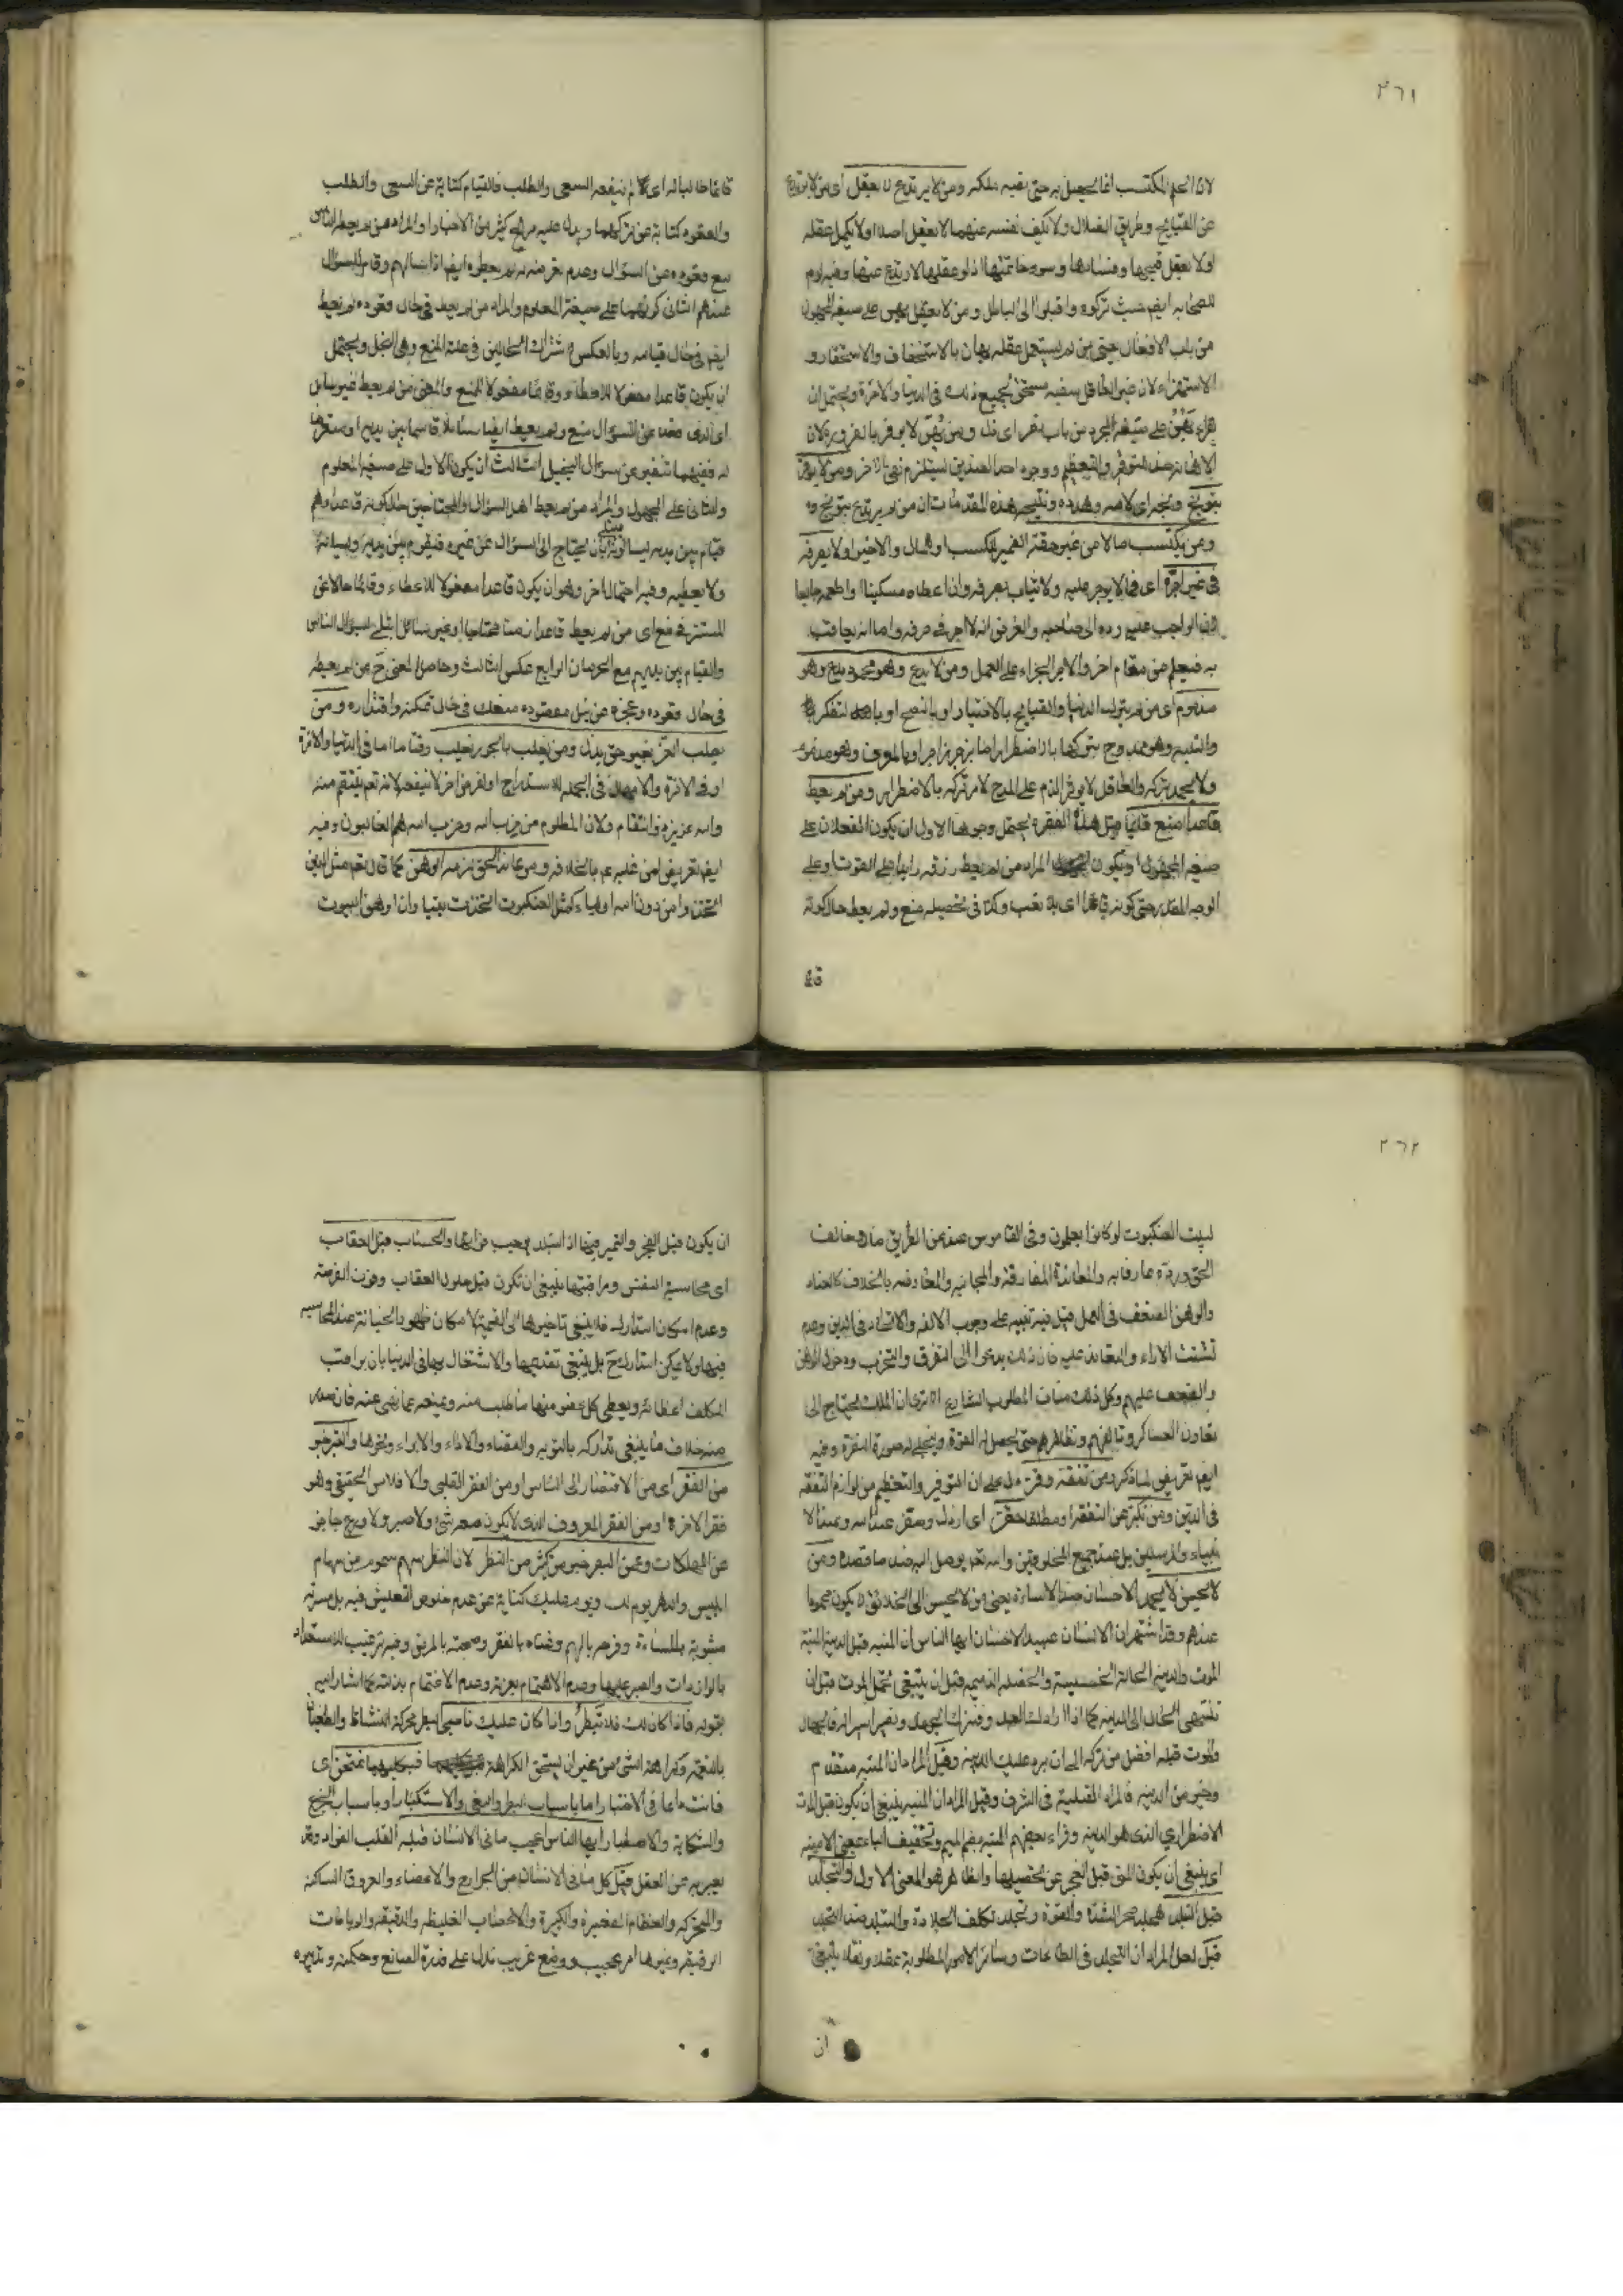 ٣٦١
لان الحلم المكتسب انما يحصل به حتى يصير ملكة ومن لا يرتدع لا يعقل اى من لا يرتدع
عن القبايح وطريق الضلال ولا يكف نفسه عنهما لا يعقل اصلا اولا يكمل عقله
اولا يعقل قبحها وفسادها وسوء خاتمتها اذ لو عقلها لارتدع عنها وفيه لوم
للصحابه ايضم حيث تركوه واقبلوا الى الباطل ومن لا يعقل يهن على صيغة المجهول
من باب الافعال حتى من لم يستعمل عقله يهان بالاستخفاف والاستحقار و
الاستهزاء لان غير العاقل سفيه مستحق لجميع ذلك فى الدنيا والاخرة ويحتمل ان
يقرء يهن على صيغة المجرد من باب نصر اى ذل ومن يهن لا يوقر بالضرورة لان
الاهانة ضد التوقير والتعظيم ووجود احد الضدين يستلزم نفى الاخر ومن لا يوقر
بتوبيخ
ومن يكتسب مالا من غير حقه الضمير للكسب او المال والاخير اولا يصرفه
فى غير اجره اى فيما لا يوجر عليه ولا يثاب بصرفه وان اعطاه مسكينا او اطعمه جايعا
لان الواجب عليه رده الى صاحبه والغرض انه لا اجر فى صرفه واما انه يعاقب
به فيعلم من مقام اخر والاجر الجزاء على العمل ومن لا يدع وهو محمود يدع وهو
مذموم اى من لم يترك الدنيا والقبايح بالاختيار او بالنصح او التفكر
والتدبر وهو ممدوح يتركها بالاضطرار اما بزجر زاجر او بالموت وهو مذموم
ولا يحمد بتركه والعاقل لا يوثر الذم على المدح لامر تركه بالاضطرار ومن لم يعط
قاعدا منع قائما مثل هذه الفقره يحتمل وجوها الاول ان يكون الفعلان على
صيغة المجهول ويكون المراد من لم يعط رزقه راتبا على القوت وعلى
الوجه المقدر حتى كونه قاعدا اى بلا تعب وكد فى تحصيله منع ولم يعط حال كونه
قائما طالبا له اى لا ينفعه السعى والطلب فالقيام كناية عن السعى والطلب
والقعود كناية عن تركهما ويدل عليه صريح كثير من الاخبار او المراد من لم يعطه الناس
مع قعوده عن السؤال وعدم تعرضه له لم يعطوه ايضم اذا سالهم وقام للسؤال
عندهم الثانى كونهما على صيغة المعلوم والمراد من لم يعط فى حال قعوده لم يعط
ايضم فى حال قيامه وبالعكس لاشتراك الحالين فى علة المنع وهى البخل ويحتمل
ان يكون قاعدا مفعولا للاعطاء وقائما مفعولا للمنع والمعنى من لم يعط غير سايل
اى الذى قعد عن السؤال منع ولم يعط ايضا سائلا قائما بين يديه
له ففيهما تنفير عن سؤال البخيل الثالث ان يكون الاول على صيغة المعلوم
والثانى على المجهول والمراد من لم يعط اهل السؤال والمحتاجين حال كونه قاعدا وهم
قيام بين يديه ابتلى بان يحتاج الى السؤال عن غيره فيقوم بين يديه ويساله
ولا يعطيه وفيه احتمال اخر وهو ان يكون قاعدا مفعولا للاعطاء وقائما حالا عن
المستتر فى منع اى من لم يعط قاعدا زمنا محتاجا او غير سائل ابتلى بسؤال الناس
والقيام بين يديهم مع الحرمان الرابع عكس الثالث وحاصل المعنى ح من لم يعط
فى حال قعوده وعجزه عن نيل مقصوده فى حال تمكنه واقتداره ومن
يطلب العز بغير حق يذل ومن يغلب بالجور يغلب وقتا ما اما فى الدنيا والاخرة
او فى الاخرة والامهال فى الجمله للاستدراج او لغرض اخر لا ينفعه لانه تعم ينتقم منه
والله عزيز ذو انتقام ولان المظلوم من حزب الله وحزب الله هم الغالبون وفيه
ايضم تعريض لمن غلبه عم بالخلافه ومن عاند الحق لزمه الوهن كما قال تعم مثل الذين
اتخذوا من دون الله اولياء كمثل العنكبوت اتخذت بيتا وان اوهن البيوت
٣٦٢
لبيت العنكبوت لو كانوا يعلمون وفى القاموس عند عن الطريق مال وخالف
الحق ورده عارفا به والمعاندة المفارقة والمجانبه والمعارضه بالخلاف كالعناد
والوهن الضعف فى العمل قيل فيه تنبيه على وجوب الالفه والاتحاد فى الدين وعدم
تشتت الاراء والمعاندة عليه فان ذلك يدعوا الى التفرق والتحزب ودخول الوهن
والضعف عليهم وكل ذلك مناف لمطلوب الشارع الا ترى ان الملك يحتاج الى
تعاون العساكر وتالفهم وتظاهرهم حتى يحصل له القوة وينجلى له صورة النصرة وفيه
ايضم تعريض لما ذكر ومن تفقه وقر دل على ان التوقير والتعظيم من لوازم التفقه
فى الدين ومن تكبر عن التفقه او مطلقا حقر اى اذل وحقر عند الله وعند الا
نبياء والمرسلين بل عند جميع المخلوقين والله تعم يوصل اليه ضد ما قصده ومن
لا يحسن لا يحمد الاحسان ضد الاساءة يعنى من لا يحسن الى الخلائق لا يكون محمودا
عندهم وقد اشتهر ان الانسان عبيد الاحسان ايها الناس ان المنيه قبل الدنيه المنية
الموت والدنيه الحالة الخسيسة والخصله الذميمه قيل ينبغى تحمل الموت قبل ان
تنتهى الحال الى الدنيه كما اذا ارادك العدو
والموت قبله افضل من تركه الى ان يرد عليك الدنيه وقيل المراد ان المنيه متقدم
وخير من الدنيه فالمراد القبليه فى الشرف وقيل المراد ان المنيه ينبغى ان يكون قبل الموت
الاضطرارى الذى هو الدنيه وقراء بعضهم المنيه بضم الميم وتخفيف الياء بمعنى الامنيه
اى ينبغى ان يكون المنى قبل العجز عن تحصيلها والظاهر هو المعنى الاول والتجلد
قبل التبلد الجلد محركة الشدة والقوة وتجلد تكلف الجلادة والتبلد ضد التجلد
قيل لعل المراد ان التجلد فى الطاعات وسائر الامور المطلوبة عقلا ونقلا ينبغى
ان
ان يكون قبل العجز والتحير فيها اذ التبلد يوجب فواتها والحساب قبل العقاب
اى محاسبة النفس ومراقبتها ينبغى ان تكون قبل حلول العقاب وفوت الفرصة
وعدم امكان استدراك فلا ينبغى تاخيرها الى القيمة لامكان ظهور الخيانة عند المحاسبه
فيها ولا يمكن استدراك ح بل ينبغى تقديمها والاشتغال بها فى الدنيا بان يراقب
المكلف اعضائه ويعطى كل عضو منها ما طلب منه ويمنعه عما نهى عنه فان صدر
منه خلاف ما ينبغى تداركه بالتوبه والقضاء والاداء والابراء ونحوها والقبر خير
من الفقر اى من الافتقار الى الناس او من الفقر القلبى والافلاس الحقيقى وهو
فقر الاخرة او من الفقر المعروف الذى لا يكون معه شئ ولا صبر ولا ورع حاجز
عن المهلكات وعمى البصر خير من كثير من النظر لان النظر سهم مسموم من سهام
ابليس والدهر يوم لك ويوم عليك كناية عن عدم خلوص التعيش فيه بل مسرته
مشوبة بالمساءة وفرحه بالهم وغناه بالفقر وصحته بالمرض وفيه ترغيب للاستعداد
بالواردات والصبر عليها وعدم الاهتمام بعزته وعدم الاغتمام بذلته كما اشار اليه
بقوله فاذا كان لك فلا تبطر واذا كان عليك فاصبر البطر محركة النشاط والطغيان
بالنعمة وكراهة الشئ من غير ان يستحق الكراهة فبكليهما تمتحن اى
فانت دائما فى الاختبار اما باسباب البطر والبغى والاستكبار او باسباب الجزع
والشكاية والاصطبار ايها الناس اعجب ما فى الانسان قلبه القلب الفواد وقد
يعبر به عن العقل قيل كل ما فى الانسان من الجوارح والاعضاء والعروق الساكنة
والمتحركة والعظام الصغيرة والكبيرة والاعصاب الغليظه والدقيقه والرباطات
الرقيقه وغيرها امر عجيب ووضع غريب تدل على قدرة الصانع وحكمته وتدبيره